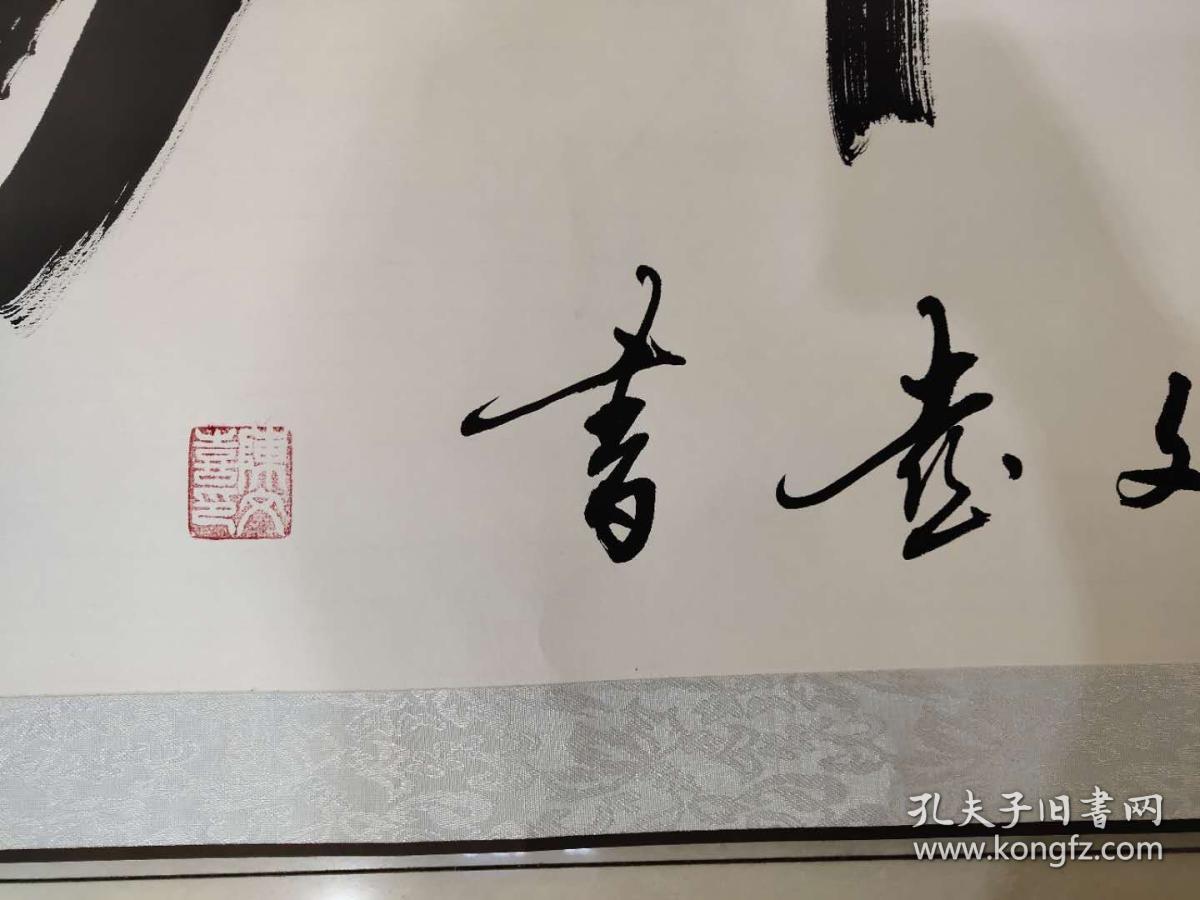 文喜書
陳文
喜印
孔夫子旧書网
www.kongfz.com